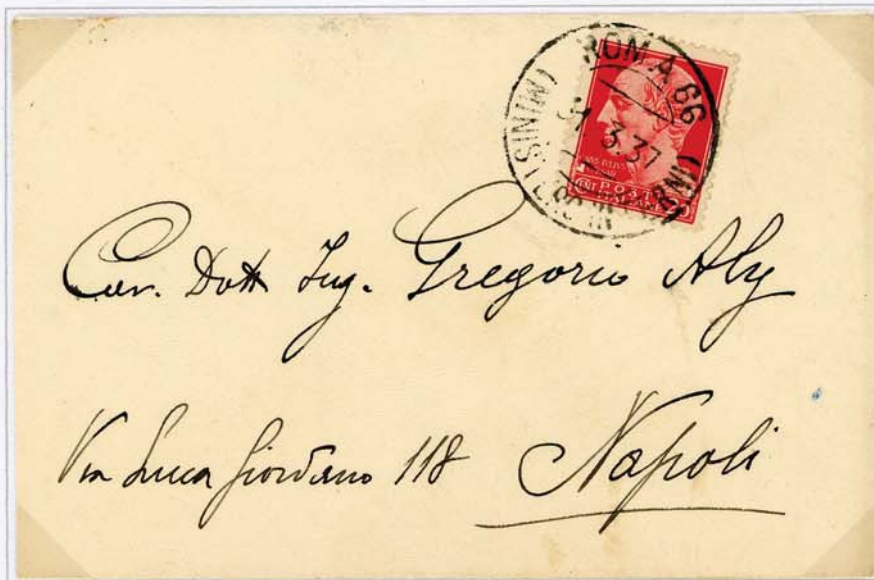 ROMA 66
31.3.37
(MINISTERO INTERNI)
POSTE
Cav. Dott Ing. Gregorio Aly
Via Luca Giordano 118 Napoli